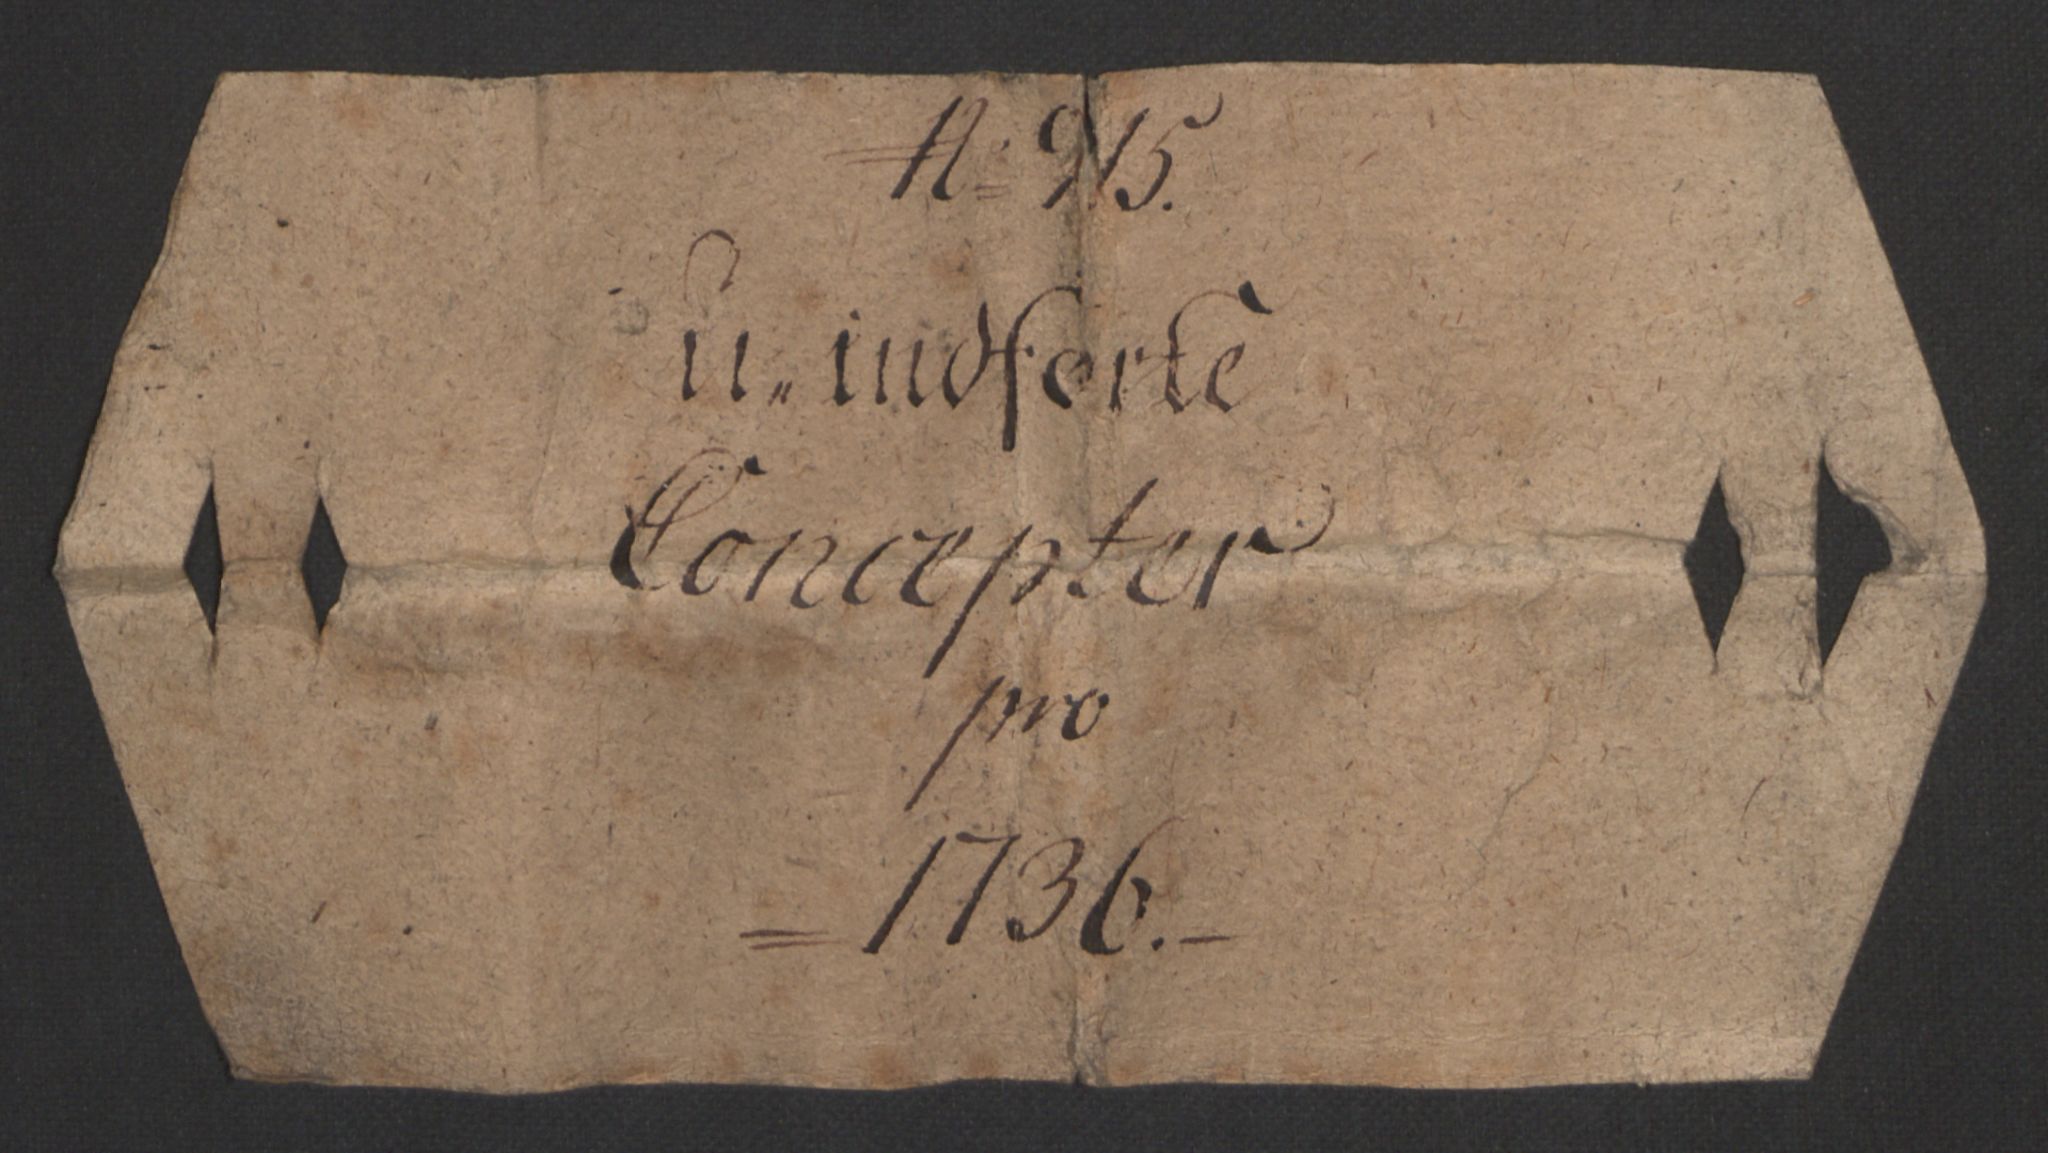 N: 915.
u-indførte
Concepter
pro
1736.